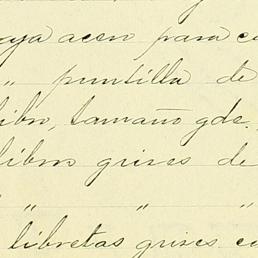 aya acen para c
" puntilla de
libro, tamaño gde.
libros grises de
" " "
libretas grises c